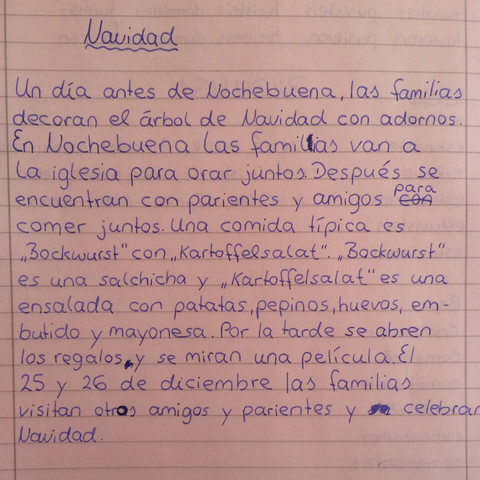 Navidad
Un día antes de Nochebuena, las familias
decoran el árbol de Navidad con adornos.
En Nochebuena las familias van a
la iglesia para orar juntos. Después se
encuentran con parientes y amigos para
comer juntos. Una comida típica es
„Bockwurst" con „Kartoffelsalat". „Bockwurst"
es una salchicha y „Kartoffelsalat" es una
ensalada con patatas, pepinos, huevos, em-
butido y mayonesa. Por la tarde se abren
los regalos, y se miran una película. El
25 y 26 de diciembre las familias
visitan otros amigos y parientes y celebrar
Navidad.